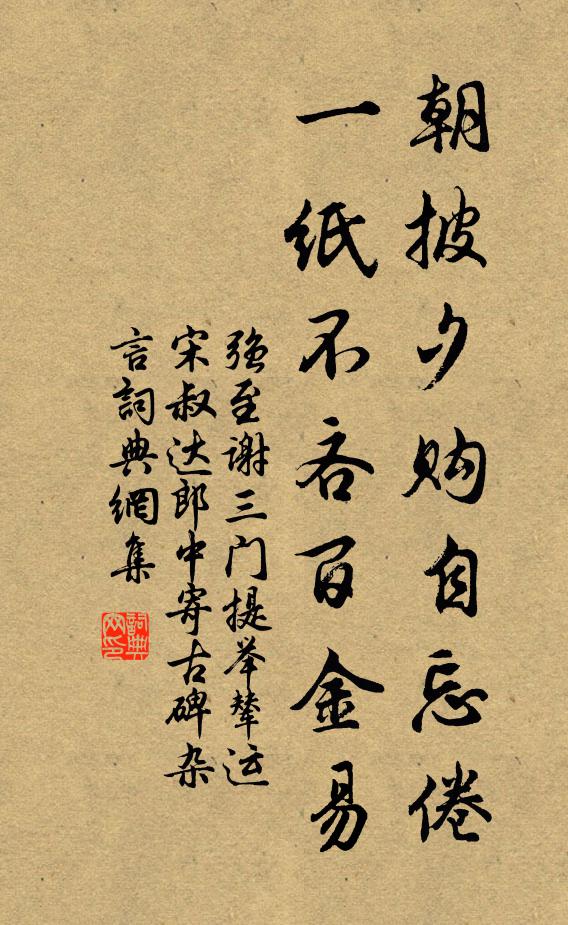 朝披夕购自忘倦
一纸不吝百金易
强至谢三门提举辇运
宋叔达郎中寄古碑杂
言詞典網集
詞典網印